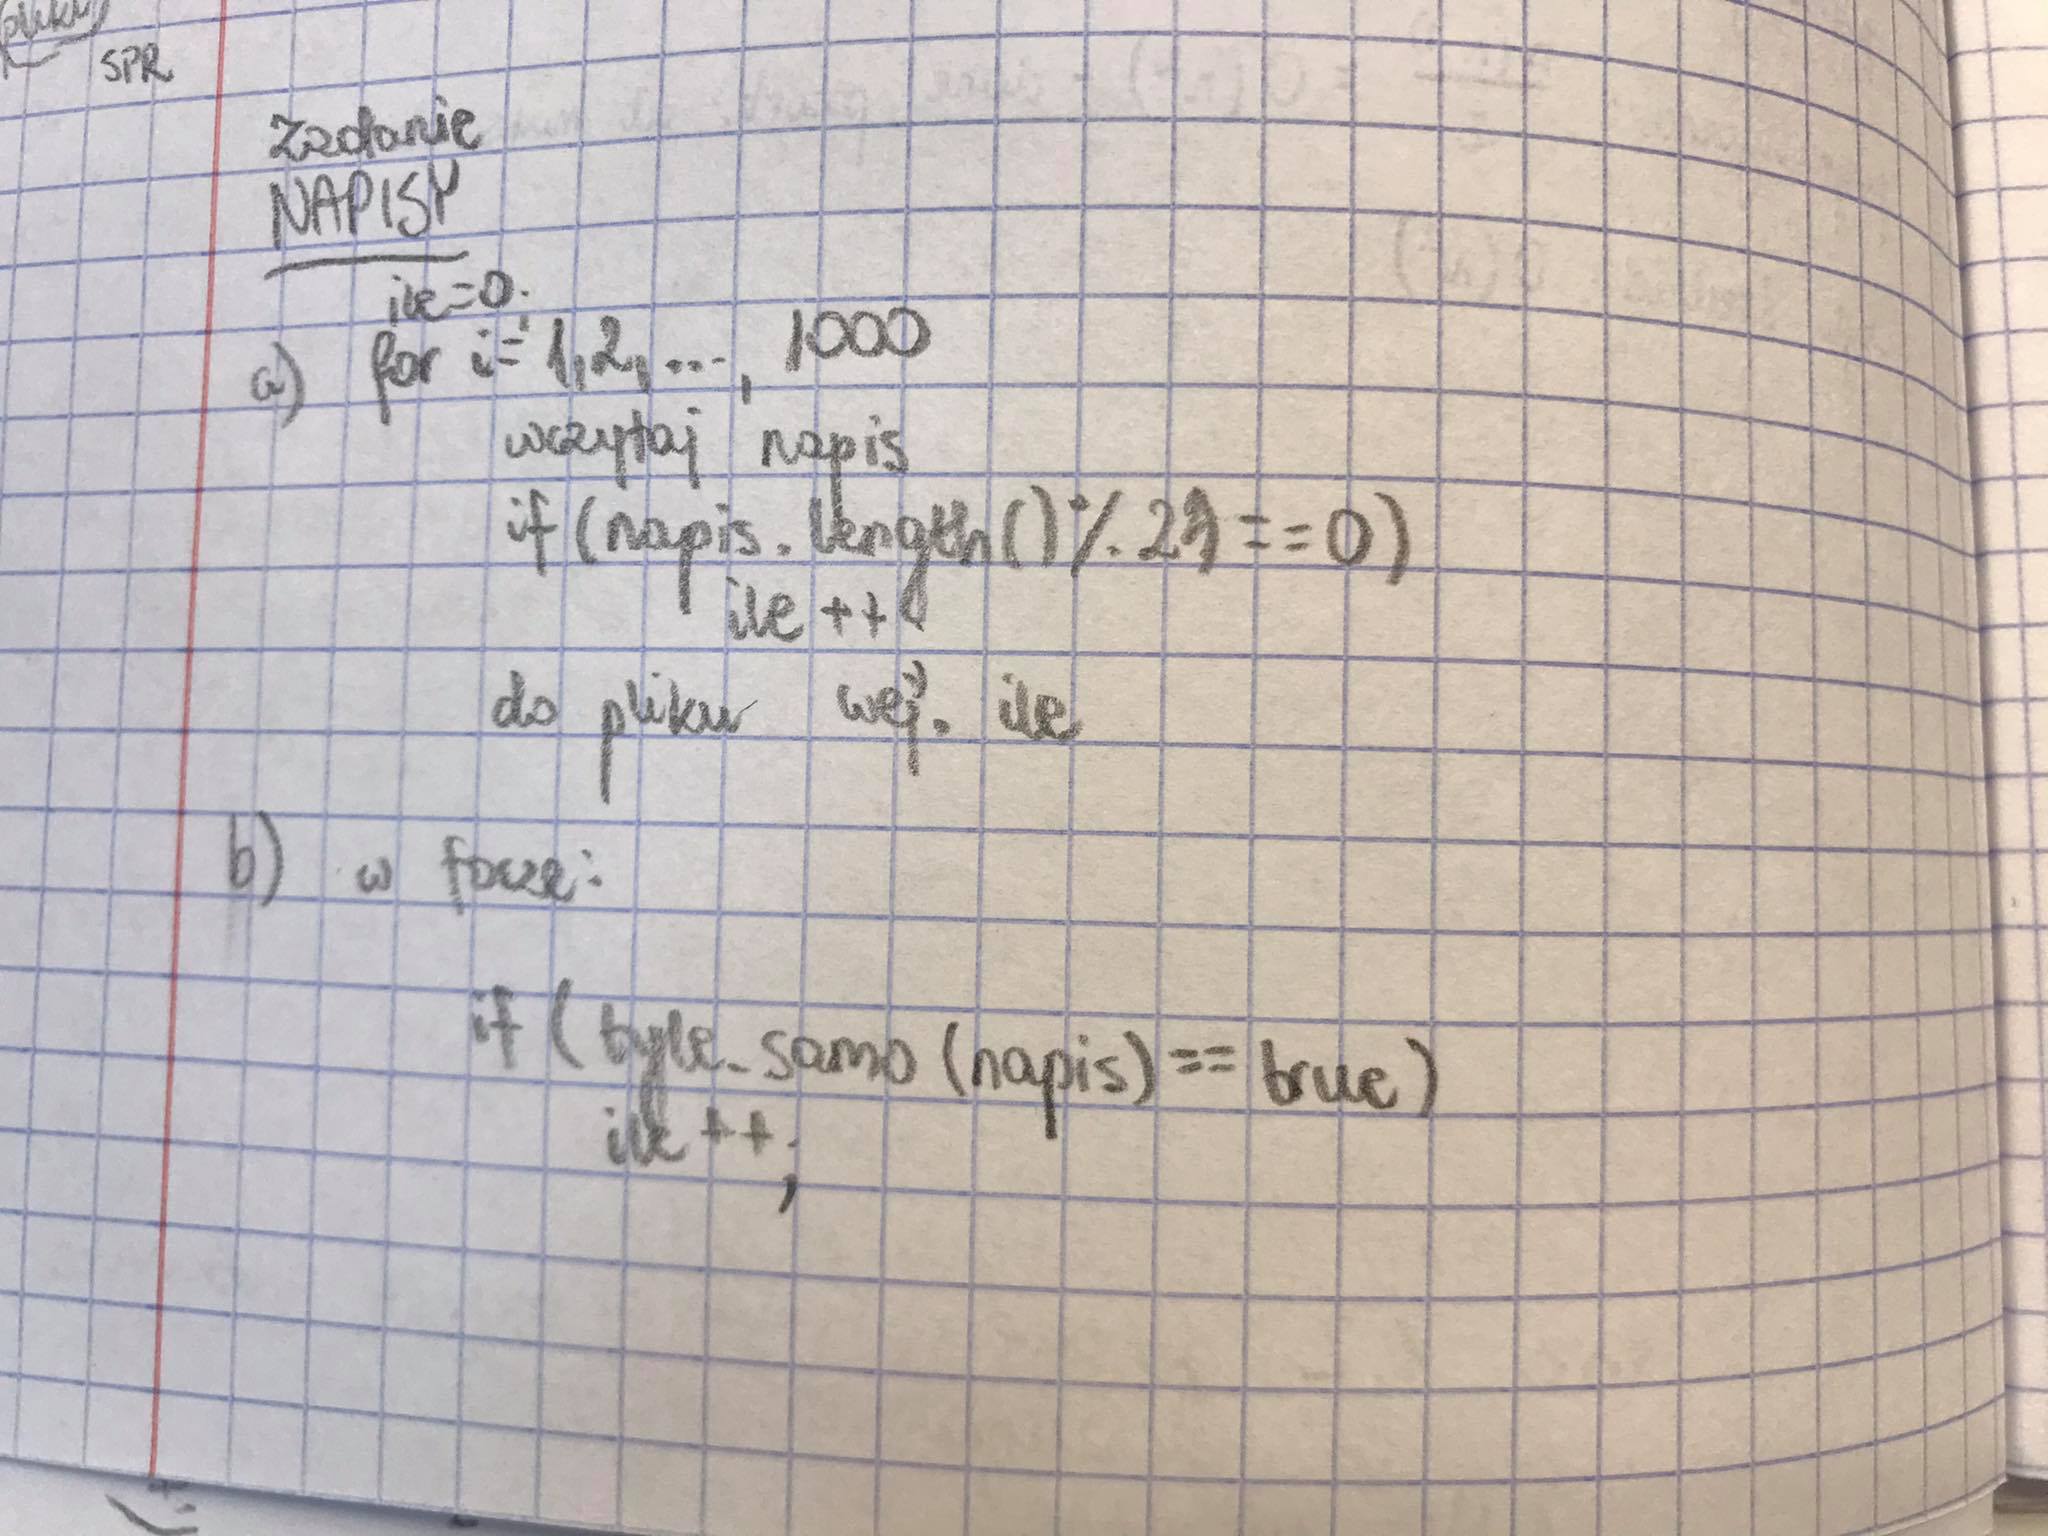 pliku
SPR
Zadanie
NAPISY
ile=0;
a) for i=1,2,..., 1000
wczytaj napis
if (napis.length()%2==0)
ile++
do pliku wej. ile
b) w forze:
if (tyle_samo(napis)==true)
ile++;